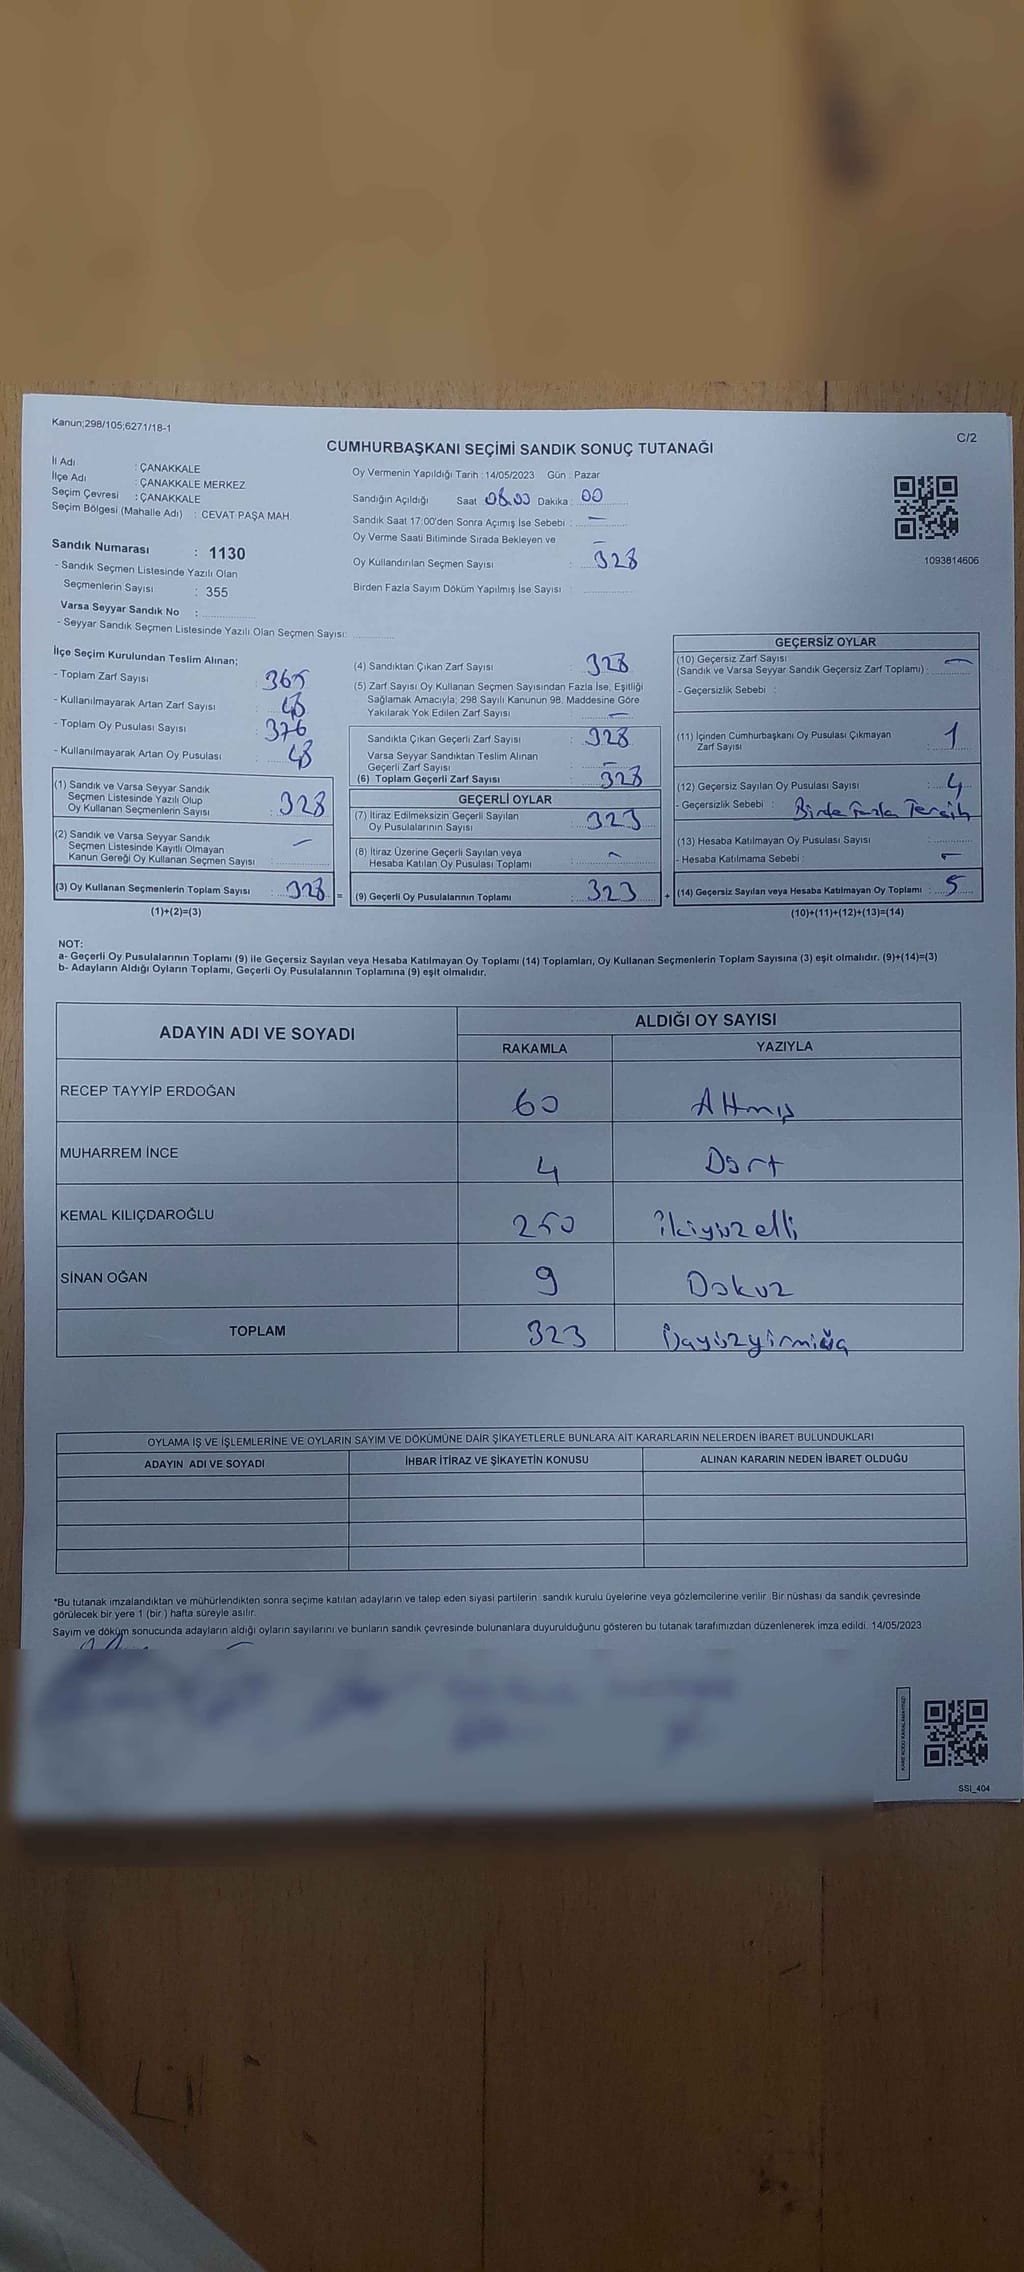 Kanun;298/105;6271/18-1
C/2
CUMHURBAŞKANI SEÇİMİ SANDIK SONUÇ TUTANAĞI
İl Adı : ÇANAKKALE
İlçe Adı : ÇANAKKALE MERKEZ
Seçim Çevresi : ÇANAKKALE
Seçim Bölgesi (Mahalle Adı) : CEVAT PAŞA MAH.
Sandık Numarası : 1130
- Sandık Seçmen Listesinde Yazılı Olan
Seçmenlerin Sayısı : 355
Varsa Seyyar Sandık No :
- Seyyar Sandık Seçmen Listesinde Yazılı Olan Seçmen Sayısı:
Oy Vermenin Yapıldığı Tarih : 14/05/2023 Gün : Pazar
Sandığın Açıldığı Saat 08.00 Dakika : 00
Sandık Saat 17:00'den Sonra Açımış İse Sebebi : —
Oy Verme Saati Bitiminde Sırada Bekleyen ve —
Oy Kullandırılan Seçmen Sayısı : 328
Birden Fazla Sayım Döküm Yapılmış İse Sayısı :
1093814606
İlçe Seçim Kurulundan Teslim Alınan;
- Toplam Zarf Sayısı : 365
- Kullanılmayarak Artan Zarf Sayısı : 48
- Toplam Oy Pusulası Sayısı : 376
- Kullanılmayarak Artan Oy Pusulası : 48
(1) Sandık ve Varsa Seyyar Sandık
Seçmen Listesinde Yazılı Olup
Oy Kullanan Seçmenlerin Sayısı : 328
(2) Sandık ve Varsa Seyyar Sandık
Seçmen Listesinde Kayıtlı Olmayan
Kanun Gereği Oy Kullanan Seçmen Sayısı : —
(3) Oy Kullanan Seçmenlerin Toplam Sayısı : 328 =
(1)+(2)=(3)
(4) Sandıktan Çıkan Zarf Sayısı : 328
(5) Zarf Sayısı Oy Kullanan Seçmen Sayısından Fazla İse, Eşitliği
Sağlamak Amacıyla; 298 Sayılı Kanunun 98. Maddesine Göre
Yakılarak Yok Edilen Zarf Sayısı : —
Sandıkta Çıkan Geçerli Zarf Sayısı : 328
Varsa Seyyar Sandıktan Teslim Alınan
Geçerli Zarf Sayısı : —
(6) Toplam Geçerli Zarf Sayısı : 328
GEÇERLİ OYLAR
(7) İtiraz Edilmeksizin Geçerli Sayılan
Oy Pusulalarının Sayısı : 323
(8) İtiraz Üzerine Geçerli Sayılan veya
Hesaba Katılan Oy Pusulası Toplamı : —
(9) Geçerli Oy Pusulalarının Toplamı : 323 +
GEÇERSİZ OYLAR
(10) Geçersiz Zarf Sayısı
(Sandık ve Varsa Seyyar Sandık Geçersiz Zarf Toplamı) : —
- Geçersizlik Sebebi :
(11) İçinden Cumhurbaşkanı Oy Pusulası Çıkmayan
Zarf Sayısı : 1
(12) Geçersiz Sayılan Oy Pusulası Sayısı : 4
- Geçersizlik Sebebi : Birde Fazla Tercih
(13) Hesaba Katılmayan Oy Pusulası Sayısı :
- Hesaba Katılmama Sebebi : —
(14) Geçersiz Sayılan veya Hesaba Katılmayan Oy Toplamı : 5
(10)+(11)+(12)+(13)=(14)
NOT:
a- Geçerli Oy Pusulalarının Toplamı (9) ile Geçersiz Sayılan veya Hesaba Katılmayan Oy Toplamı (14) Toplamları, Oy Kullanan Seçmenlerin Toplam Sayısına (3) eşit olmalıdır. (9)+(14)=(3)
b- Adayların Aldığı Oyların Toplamı, Geçerli Oy Pusulalarının Toplamına (9) eşit olmalıdır.
ADAYIN ADI VE SOYADI
ALDIĞI OY SAYISI
RAKAMLA YAZIYLA
RECEP TAYYİP ERDOĞAN 60 Altmış
MUHARREM İNCE 4 Dört
KEMAL KILIÇDAROĞLU 250 ikiyüzelli
SİNAN OĞAN 9 Dokuz
TOPLAM 323
OYLAMA İŞ VE İŞLEMLERİNE VE OYLARIN SAYIM VE DÖKÜMÜNE DAİR ŞİKAYETLERLE BUNLARA AİT KARARLARIN NELERDEN İBARET BULUNDUKLARI
ADAYIN ADI VE SOYADI İHBAR İTİRAZ VE ŞİKAYETİN KONUSU ALINAN KARARIN NEDEN İBARET OLDUĞU
*Bu tutanak imzalandıktan ve mühürlendikten sonra seçime katılan adayların ve talep eden siyasi partilerin sandık kurulu üyelerine veya gözlemcilerine verilir. Bir nüshası da sandık çevresinde
görülecek bir yere 1 (bir) hafta süreyle asılır.
Sayım ve döküm sonucunda adayların aldığı oyların sayılarını ve bunların sandık çevresinde bulunanlara duyurulduğunu gösteren bu tutanak tarafımızdan düzenlenerek imza edildi. 14/05/2023
SSI_404